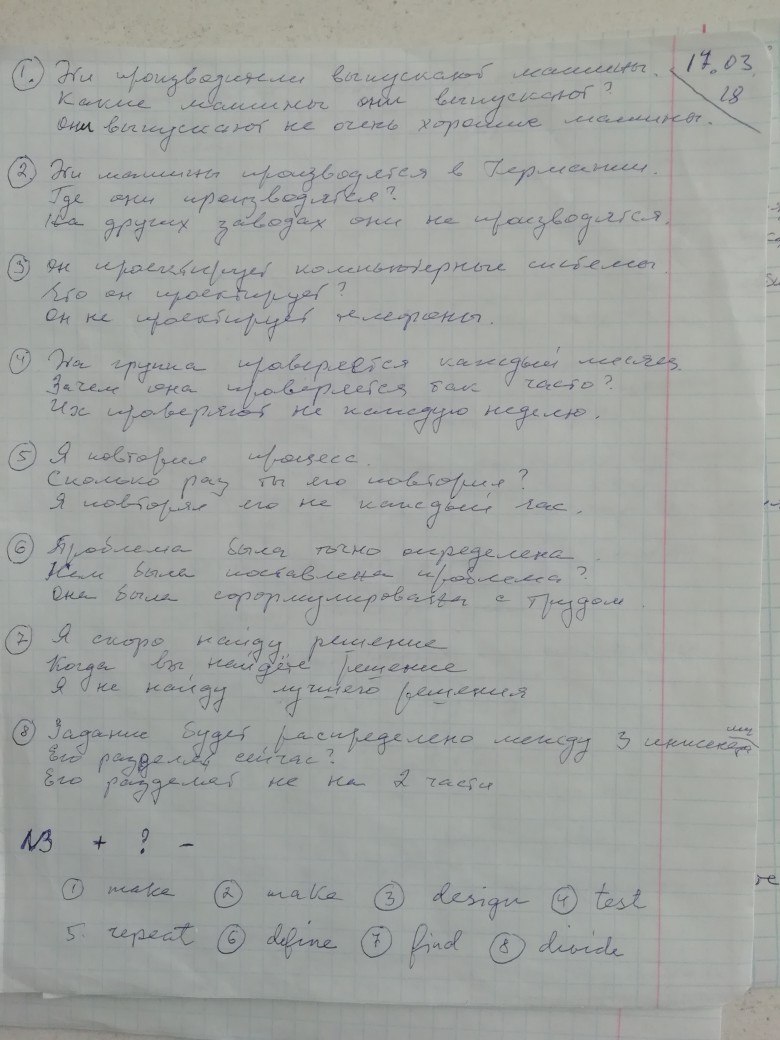 1. Эти производители выпускают машины. 17.03.18
Какие машины они выпускают?
Они выпускают не очень хорошие машины.
2. Эти машины производятся в Германии.
Где они производятся?
На других заводах они не производятся.
3 Он проектирует компьютерные системы.
Что он проектирует?
Он не проектирует телефоны.
4 Эта группа проверяется каждый месяц
Зачем она проверяется так часто?
Их проверяют не каждую неделю.
5 Я повторил процесс.
Сколько раз ты его повторил?
Я повторял его не каждый час.
6 Проблема была точно определена.
Кем была поставлена проблема?
Она была сформулирована с трудом.
7 Я скоро найду решение
Когда вы найдёте решение
Я не найду лучшего решения
8 Задание будет распределено между 3 инженерами
Его разделят сейчас?
Его разделят не на 2 части
N3 + ? -
1 make 2 make 3 design 4 test
5. repeat 6 define 7 find 8 divide